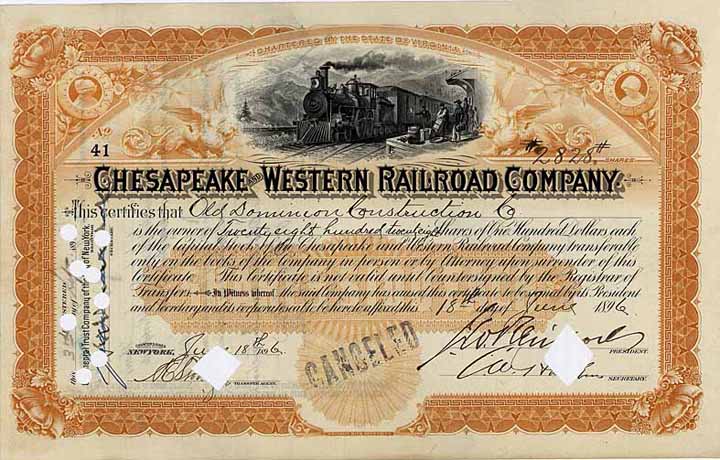 CHARTERED BY THE STATE OF VIRGINIA
No
41
#2828#
SHARES
CHESAPEAKE AND WESTERN RAILROAD COMPANY.
This certifies that Old Dominion Construction Co
is the owner of Twenty eight hundred twenty eight Shares of One Hundred Dollars each
of the Capital Stock of the Chesapeake and Western Railroad Company transferable
only on the books of the Company in person or by Attorney upon surrender of this
Certificate. This Certificate is not valid until countersigned by the Registrar of
Transfers. In Witness whereof, the said Company has caused this certificate to be signed by its President
and Secretary and its corporate seal to be hereto affixed this 18th day June 1896
NEW YORK, June 18th 1896
CANCELED
PRESIDENT.
TRANSFER AGENT.
SECRETARY.
Trust Company of New York.